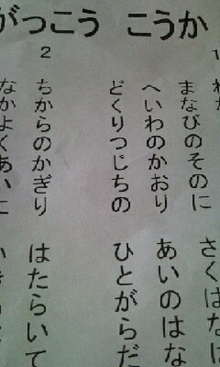 がっこう こうか
1
まなびのそのに さくはな
へいわのかおり あいのはな
どくりつじちの ひとがらだ
2
ちからのかぎり はたらいて
なかよくあい